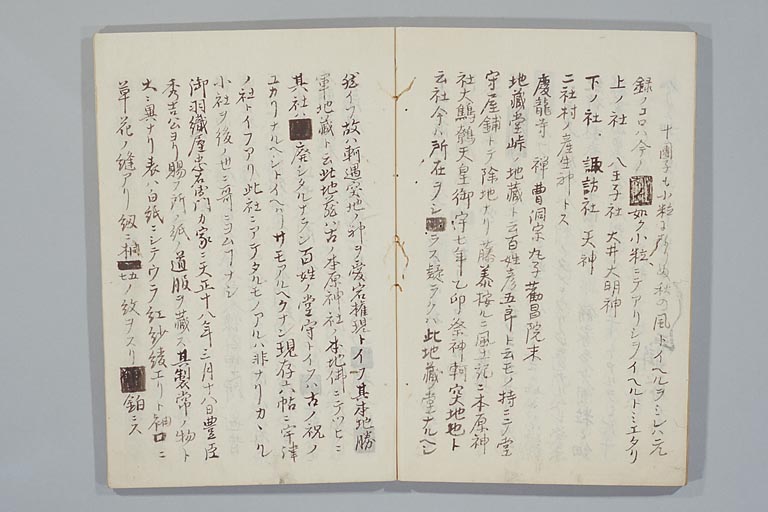 十團子も小粒になりぬ秋の風トイヘルヲミレハ元
録ノコロハ今ノ如ク小粒ニテアリシヲイヘルトミエタリ
上ノ社 八王子社 大井大明神
下ノ社、諏訪社 天神
二社村ノ産生神トス
慶龍寺 禅曹洞宗丸子勸昌院末
地藏堂峠ノ地藏ト云百姓彦五郎ト云モノ持ニテ堂
守屋鋪トテ除地ナリ藤泰按ルニ風土記ニ本原神
社大鷦鷯天皇御宇七年乙卯祭神軻突地也ト
云社今ハ所在ヲシラス疑ラクハ此地藏堂ナルヘシ
故ハ軻遇突地ノ神ヲ愛宕権現トイフ其本地勝
軍地藏ト云此地藏ハ古ノ本原神社ノ本地佛ニテツヒニ
其社ハ廃シタルナラン百姓ノ堂守トイフハ古ノ祝ノ
ユカリナルヘシトイヘリサモアルヘクナン現存六帖ニ宇津
ノ社トイフアリ此社ニアテタルモノアルハ非ナリカヽル
小社ヲ後世ニ哥ニヨムコトナシ
御羽織屋忠右衛門カ家ニ天正十八年三月十八日豊臣
秀吉公ヨリ賜フ所ノ紙ノ道服ヲ藏ス其製常ノ物ト
大ニ異ナリ表ハ白紙ニシテウラ紅紗綾エリト袖口ニ
草花ノ縫アリ紐ニ桐五七ノ紋ヲスリ鉑ニス